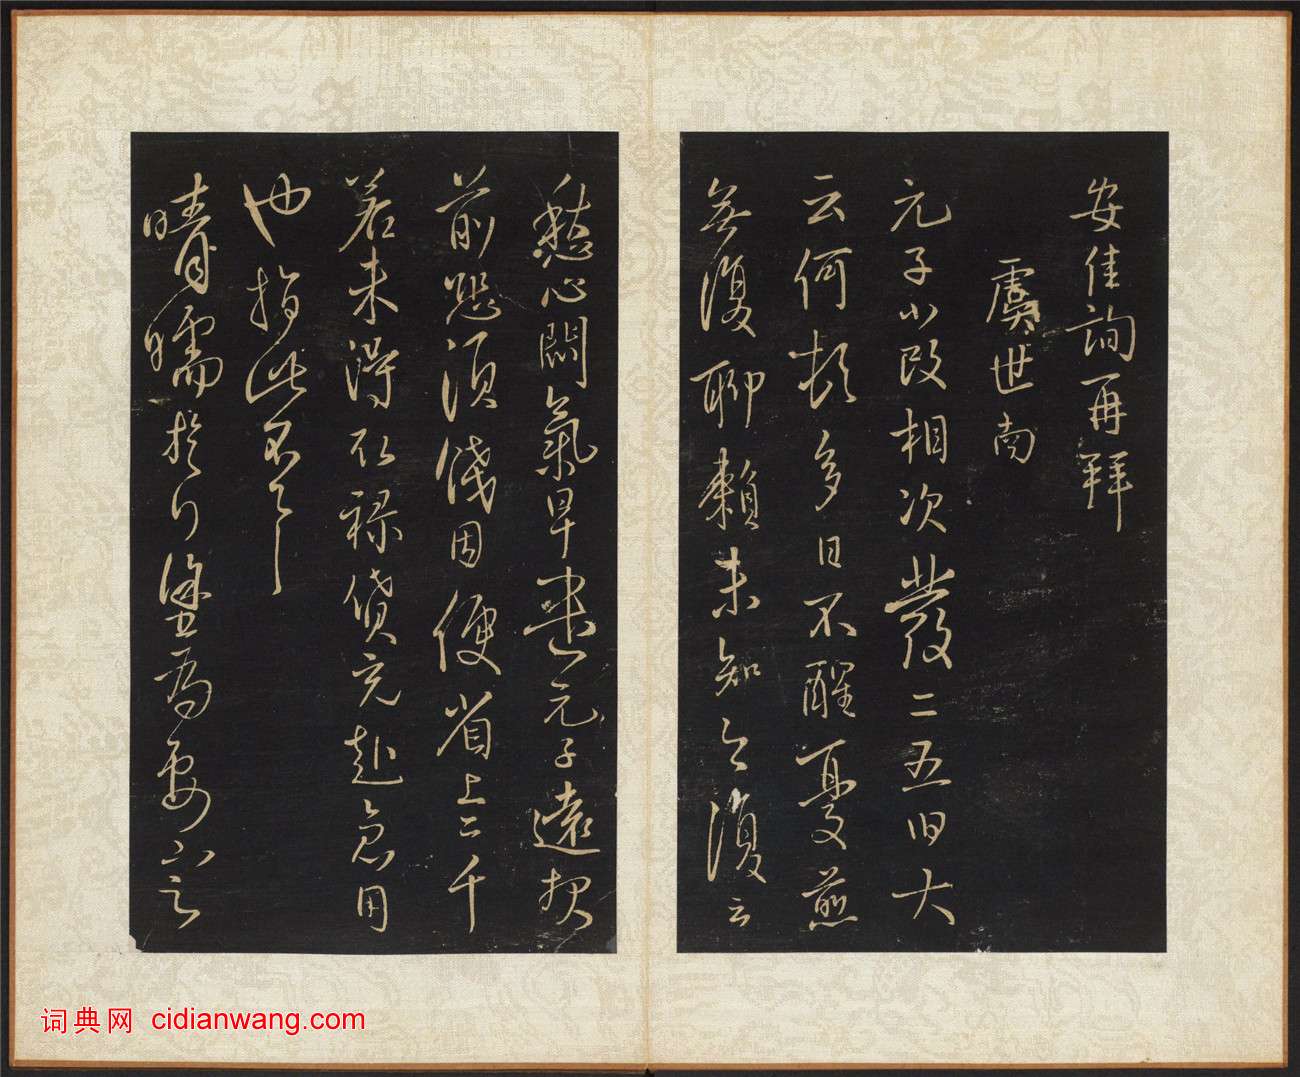 安佳詢再拜
虞世南
元子小改相次發二五日大
云何頓多日不醒憂煎
無復聊賴未知亦復云
愁心悶氣早遣元子遠
前愁須錢因便省上二千
若未得取祿貸充赴急用
也指此不
晴曙於行塗為要言
词典网 cidianwang.com